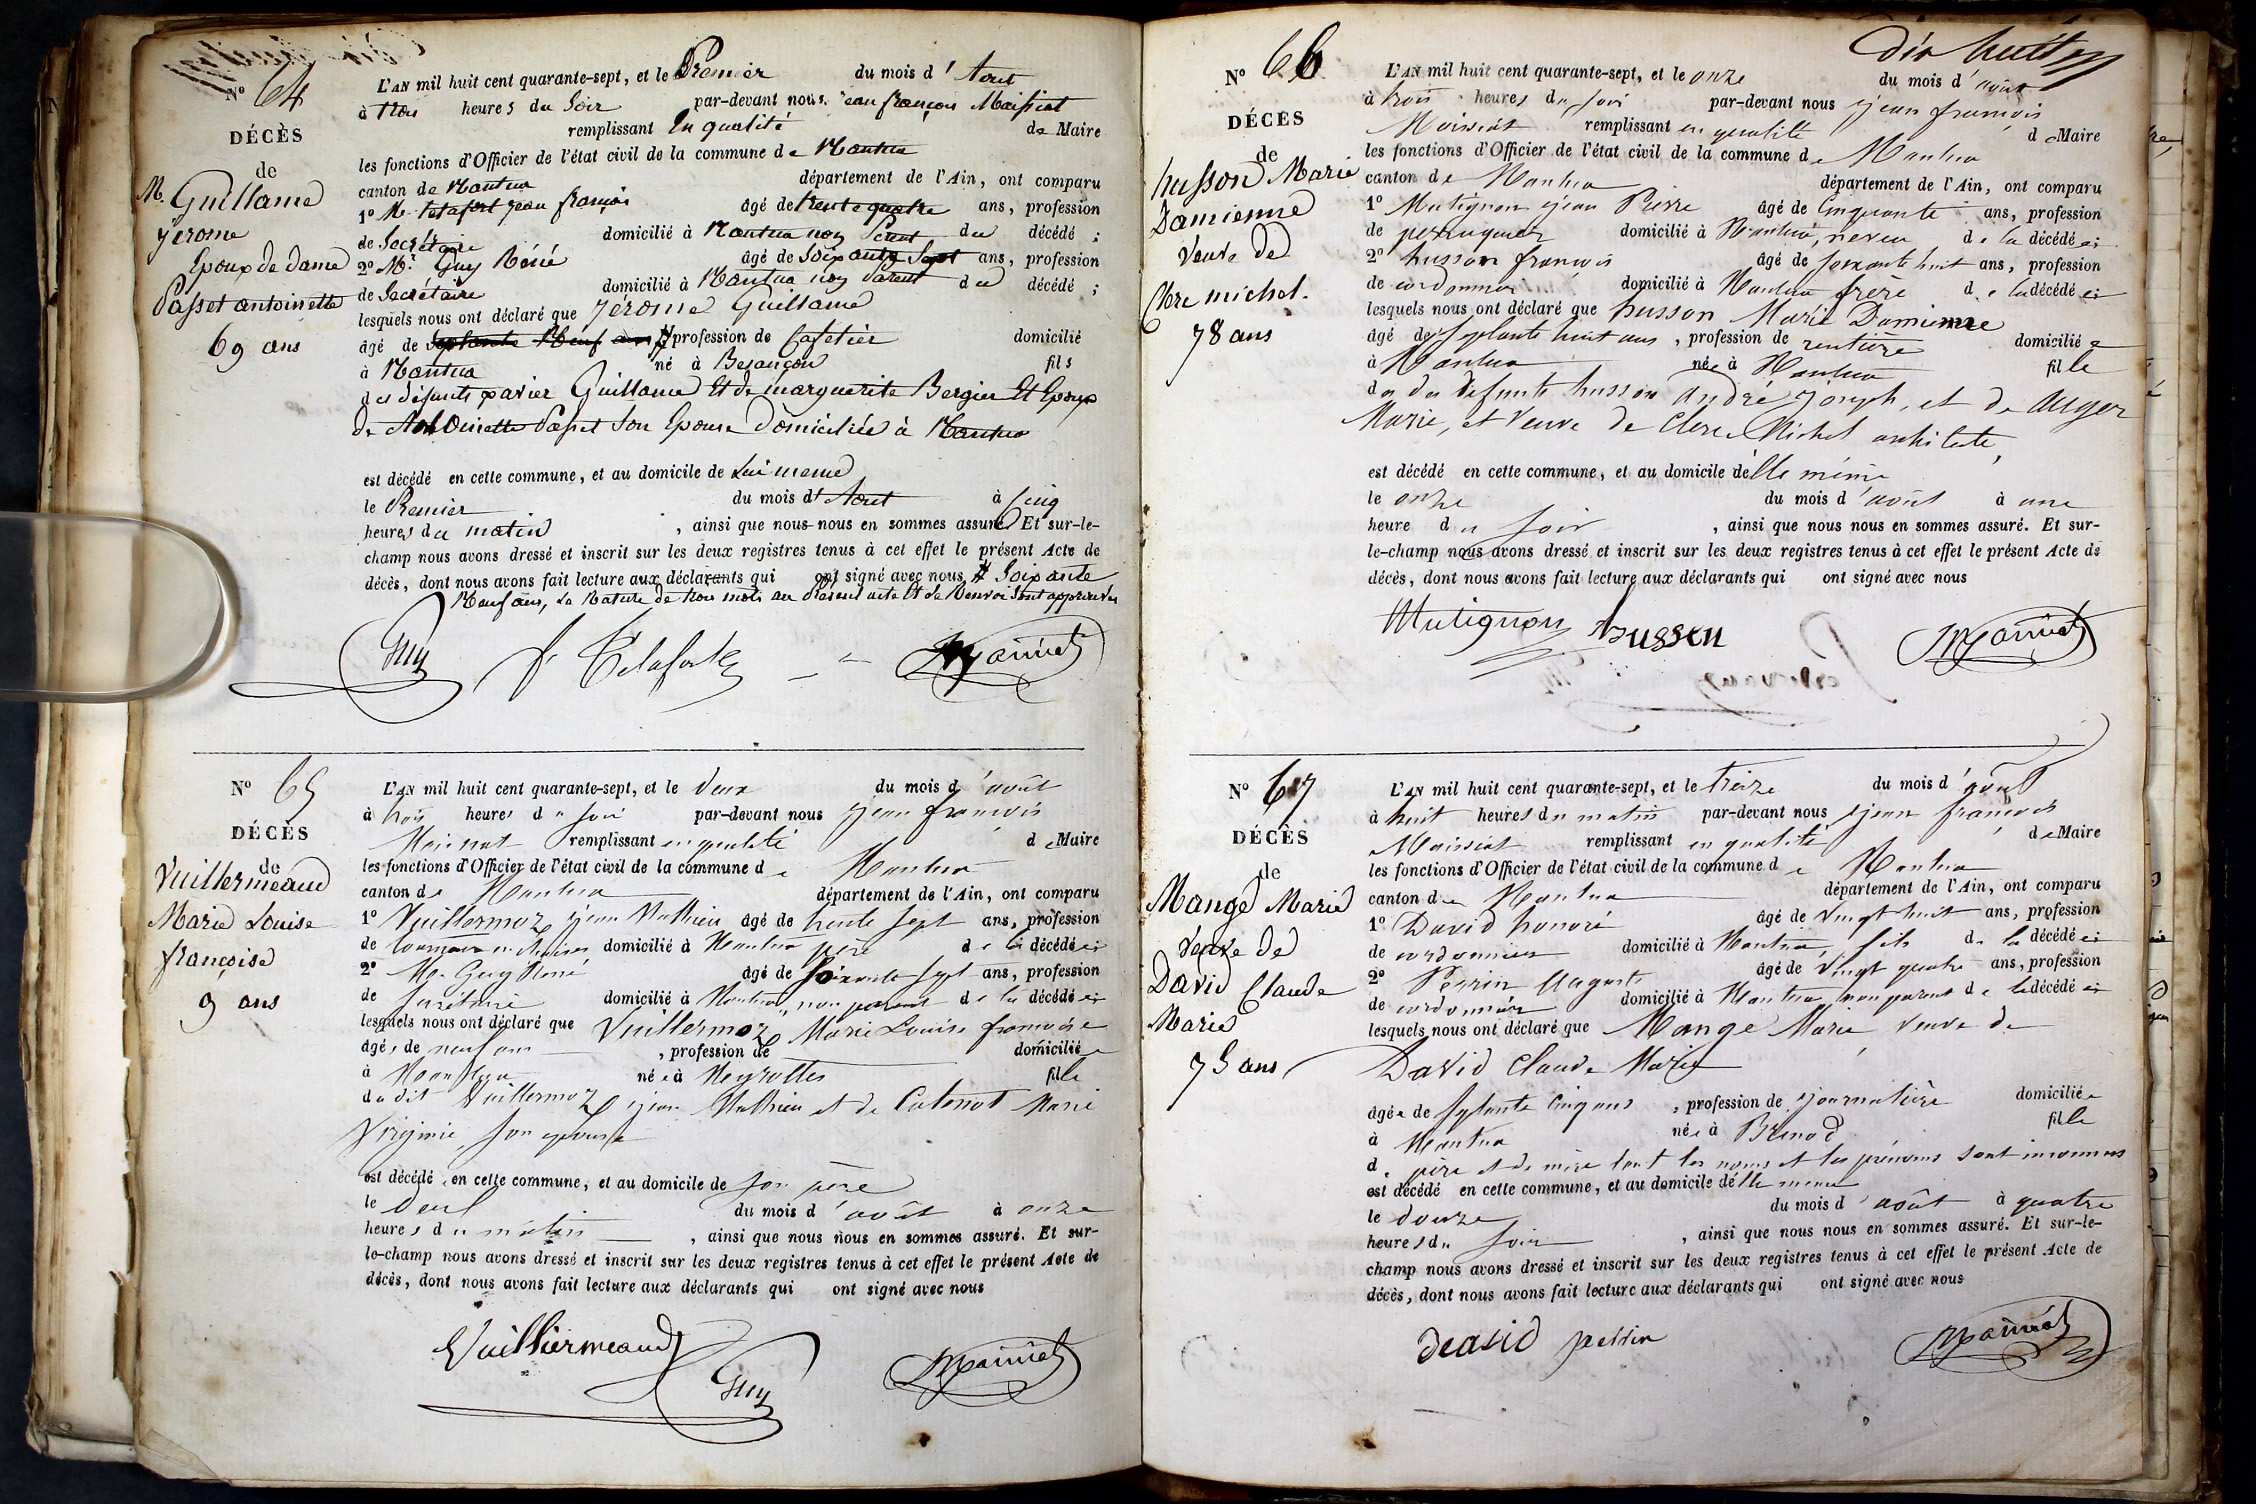 N° 64
DÉCÈS
de
M. Guillame
Jérome
Epoux de dame
Passet antoinette
69 ans
L'AN mil huit cent quarante-sept, et le Premier du mois d'Aout
à trois heures du Soir par-devant nous jean françois Maissiat
remplissant En qualité de Maire
les fonctions d'Officier de l'état civil de la commune de Nantua
canton de Nantua département de l'Ain, ont comparu
1° Mr tetafort jean françois âgé de trente quatre ans, profession
de Secrétaire domicilié à Nantua non Parent du décédé ;
2° Mr Guy Réné âgé de Soixante Sept ans, profession
de Secrétaire domicilié à Nantua non Parent du décédé ;
lesquels nous ont déclaré que Jérome Guillame
âgé de Septante Neuf ans # profession de Cafetier domicilié
à Nantua né à Besançon fils
des défunts xavier Guillame Et de marguerite Bergier Et Epoux
de Antoinette Passet Son Epouse Domiciliée à Nantua
est décédé en cette commune, et au domicile de Lui meme
le Premier du mois d'Aout à Cinq
heures du matin , ainsi que nous nous en sommes assuré. Et sur-le-
champ nous avons dressé et inscrit sur les deux registres tenus à cet effet le présent Acte de
décès, dont nous avons fait lecture aux déclarants qui ont signé avec nous # Soixante
Neuf ans, La Rature de trois mots au Présent acte Et Le Renvoi Sont approuvés
Guy
N° 65
DÉCÈS
de
Vuillermeaud
Marie Louise
françoise
9 ans
L'AN mil huit cent quarante-sept, et le deux du mois d'août
à trois heures du soir par-devant nous jean françois
Maissiat remplissant en qualité de Maire
les fonctions d'Officier de l'état civil de la commune de Nantua
canton de Nantua département de l'Ain, ont comparu
1° Vuillermoz jean Mathieu âgé de trente sept ans, profession
de tourneur en chaises domicilié à Nantua père de la décédée ;
2° Mr Guy Réné âgé de soixante sept ans, profession
de secrétaire domicilié à Nantua non parent de la décédée ;
lesquels nous ont déclaré que Vuillermoz Marie Louise françoise
âgée de neuf ans , profession de domiciliée
à Nantua née à Neyrolles fille
du dit Vuillermoz jean Mathieu et de Marie
Virginie, son épouse
est décédé en cette commune, et au domicile de son père
le deux du mois d'août à onze
heures du matin , ainsi que nous nous en sommes assuré. Et sur-
le-champ nous avons dressé et inscrit sur les deux registres tenus à cet effet le présent Acte de
décès, dont nous avons fait lecture aux déclarants qui ont signé avec nous
Vuilliermeaud
Guy
dix huit
N° 66
DÉCÈS
de
husson Marie
Damienne
veuve de
Clerc michel.
78 ans
L'AN mil huit cent quarante-sept, et le onze du mois d'août
à trois heures du soir par-devant nous jean françois
Maissiat remplissant en qualité de Maire
les fonctions d'Officier de l'état civil de la commune de Nantua
canton de Nantua département de l'Ain, ont comparu
1° Mutignon jean Pierre âgé de Cinquante ans, profession
de perruquier domicilié à Nantua, neveu de la décédée ;
2° husson françois âgé de soixante huit ans, profession
de cordonnier domicilié à Nantua frère de la décédée ;
lesquels nous ont déclaré que husson Marie Damienne
âgé de septante huit ans , profession de rentière domiciliée
à Nantua née à Nantua fille
de des défunts husson andré joseph, et de auger
Marie, et veuve de Clerc Michel architecte,
est décédé en cette commune, et au domicile d'elle même
le onze du mois d'août à une
heure du soir , ainsi que nous nous en sommes assuré. Et sur-
le-champ nous avons dressé et inscrit sur les deux registres tenus à cet effet le présent Acte de
décès, dont nous avons fait lecture aux déclarants qui ont signé avec nous
Mutignon husson
N° 67
DÉCÈS
de
Mange Marie
veuve de
David Claude
Marie
75 ans
L'AN mil huit cent quarante-sept, et le treize du mois d'août
à huit heures du matin par-devant nous jean françois
Maissiat remplissant en qualité de Maire
les fonctions d'Officier de l'état civil de la commune de Nantua
canton de Nantua département de l'Ain, ont comparu
1° David honoré âgé de vingt huit ans, profession
de cordonnier domicilié à Nantua, fils de la décédée ;
2° Perrin Auguste âgé de vingt quatre ans, profession
de cordonnier domicilié à Nantua non parent de la décédée ;
lesquels nous ont déclaré que Mange Marie veuve de
David Claude Marie
âgée de septante cinq ans , profession de journalière domiciliée
à Nantua née à Brenod fille
de père et de mère dont les noms et les prénoms sont inconnus
est décédé en cette commune, et au domicile d'elle meme
le douze du mois d'août à quatre
heures du soir , ainsi que nous nous en sommes assuré. Et sur-le-
champ nous avons dressé et inscrit sur les deux registres tenus à cet effet le présent Acte de
décès, dont nous avons fait lecture aux déclarants qui ont signé avec nous
david perrin